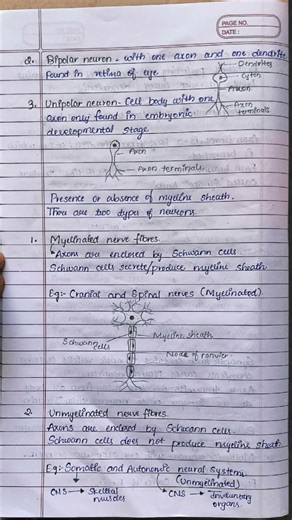 PAGE NO.
DATE:
2. Bipolar neuron - with one axon and one dendrite
found in retina of eye.
Dendrites
Cyton
Axon
Axon
terminals
3. Unipolar neuron - Cell body with one
axon only found in embryonic
developmental stage
Axon
Axon terminals
Presence or absence of myeline sheath.
Thou are two types of neurons
1. Myelinated nerve fibres.
Axons are enclosed by Schwann cells.
Schwann cells secrete/produce myeline sheath
Eg:- Cranial and Spinal nerves (Myelinated).
Schwann
cells
Myeline sheath
Node of ranvier
2. Unmyelinated nerve fibres.
Axons are enclosed by Schwann cells.
Schwann cells does not produce myeline sheath.
Eg:- Somatic and Autonomic neural systems
(Unmyelinated)
CNS → Skeletal
muscles
CNS → Involuntary
organs.